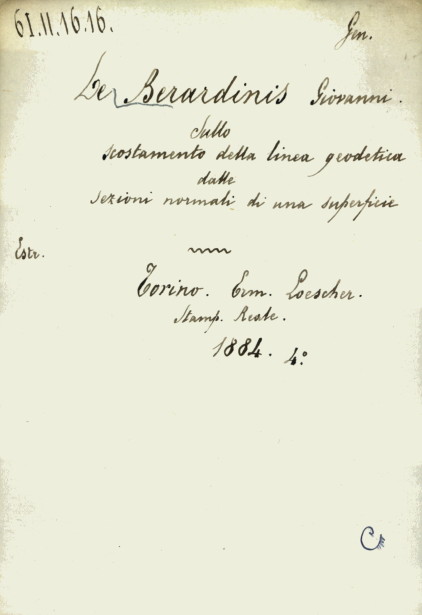 61.11.16.16.
Gen.
De Berardinis Giovanni.
Sullo
scostamento della linea geodetica
dalle
sezioni normali di una superficie
Estr.
Torino. Erm. Loescher.
Stamp. Reale.
1884. 4º